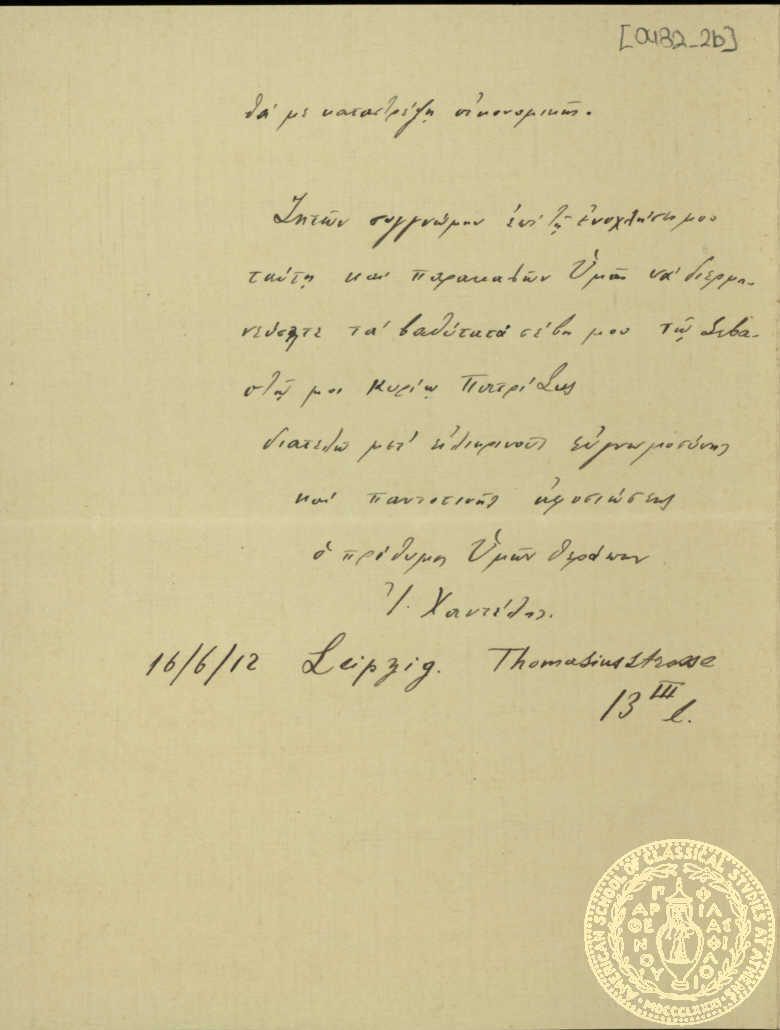 [0482_2b]
θά με καταστρέψῃ οἰκονομικῶς.
Ζητῶν συγγνώμην ἐπὶ τῇ ἐνοχλήσει μου
ταύτῃ καὶ παρακαλῶν Ὑμᾶς νὰ διερμη-
νεύσητε τὰ βαθύτατα σέβη μου τῷ Σεβα-
στῷ μοι Κυρίῳ Πατρί Σας
διατελῶ μετ' εἰλικρινοῦς εὐγνωμοσύνης
καὶ παντοτινῆς ἀφοσιώσεως
ὁ πρόθυμος Ὑμῶν θεράπων
Ἰ. Χαντέλης.
16/6/12 Leipzig. Thomasiusstrasse
13 III l.
AMERICAN SCHOOL OF CLASSICAL STUDIES AT ATHENS
ΠΑΡΘΕΝΟΥ ΦΙΛΑΣ ΦΙΛΟΙ
MDCCCLXXXI